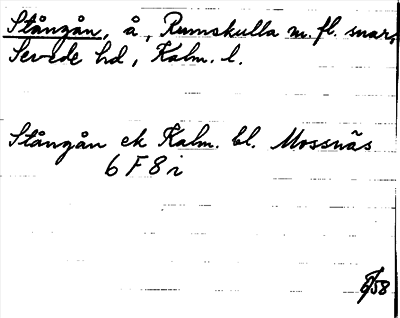 Stångån, å, Rumskulla m. fl. snar,
Sevede hd, Kalm. l.
Stångån ek Kalm. bl. Mossnäs
6 F 8 i
/58